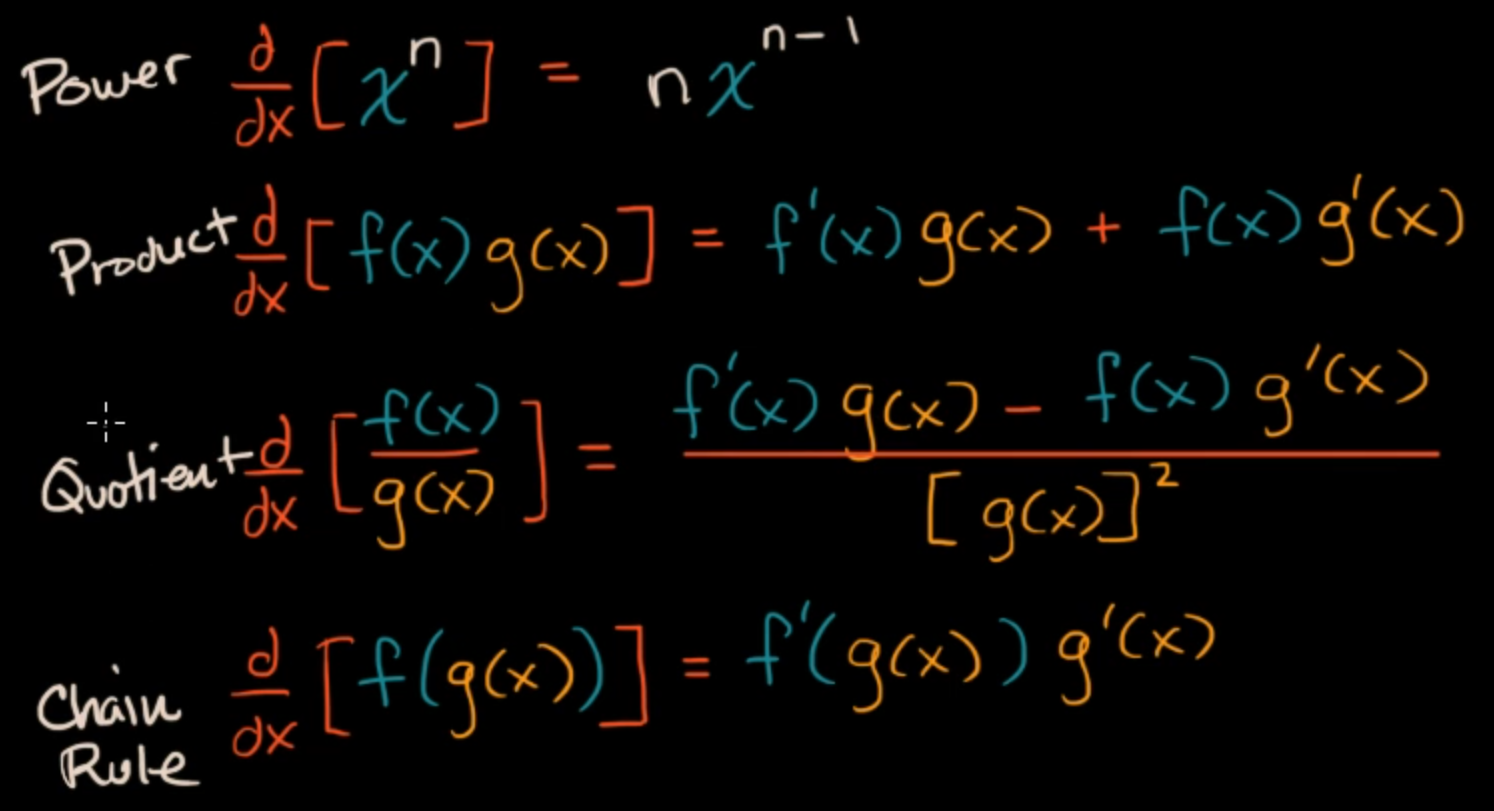 Power d/dx [xⁿ] = nxⁿ⁻¹
Product d/dx [f(x)g(x)] = f'(x)g(x) + f(x)g'(x)
Quotient d/dx [f(x)/g(x)] = f'(x)g(x) - f(x)g'(x) / [g(x)]²
Chain Rule d/dx [f(g(x))] = f'(g(x))g'(x)